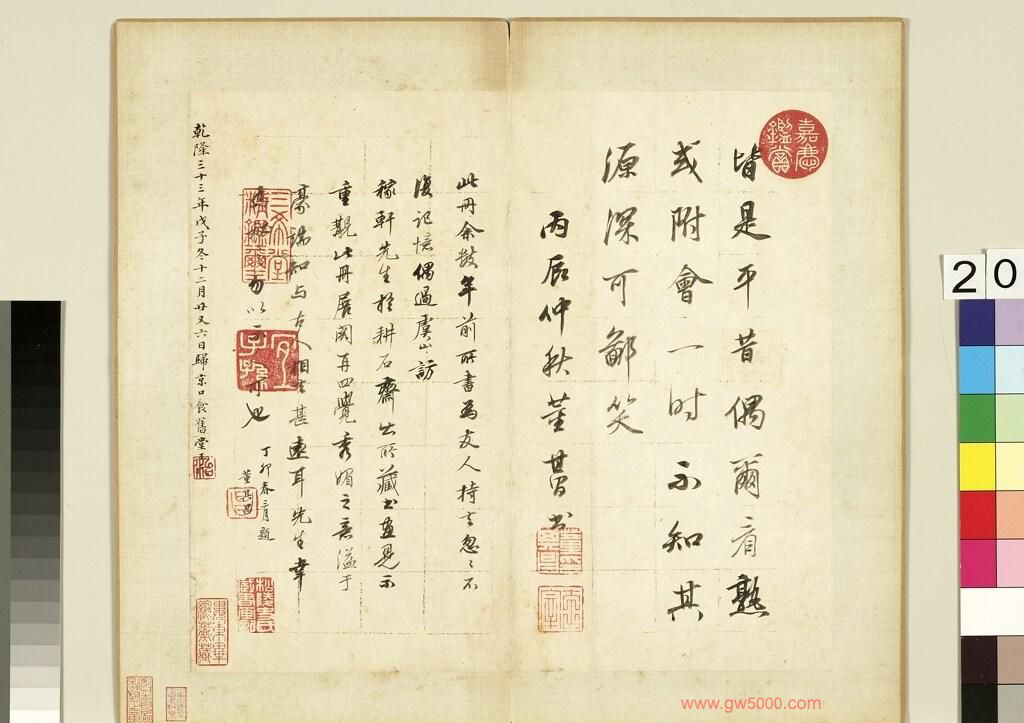 皆是平昔偶爾看熟
或附會一時不知其
源深可鄙笑
丙辰仲秋董其昌書
嘉慶鑑賞
此冊余數年前所書為友人持去忽忽不
復記憶偶過虞山訪
稼軒先生於耕石齋出所藏書畫見示
重觀此冊展閱再四覺秀媚之意溢于
豪端知与古人相去甚遠耳先生幸
有以示
也
丁卯春三月題
董其昌
三希堂精鑑璽
宜子孫
乾隆三十三年戊子冬十二月廿又六日歸京口食舊堂
20
www.gw5000.com